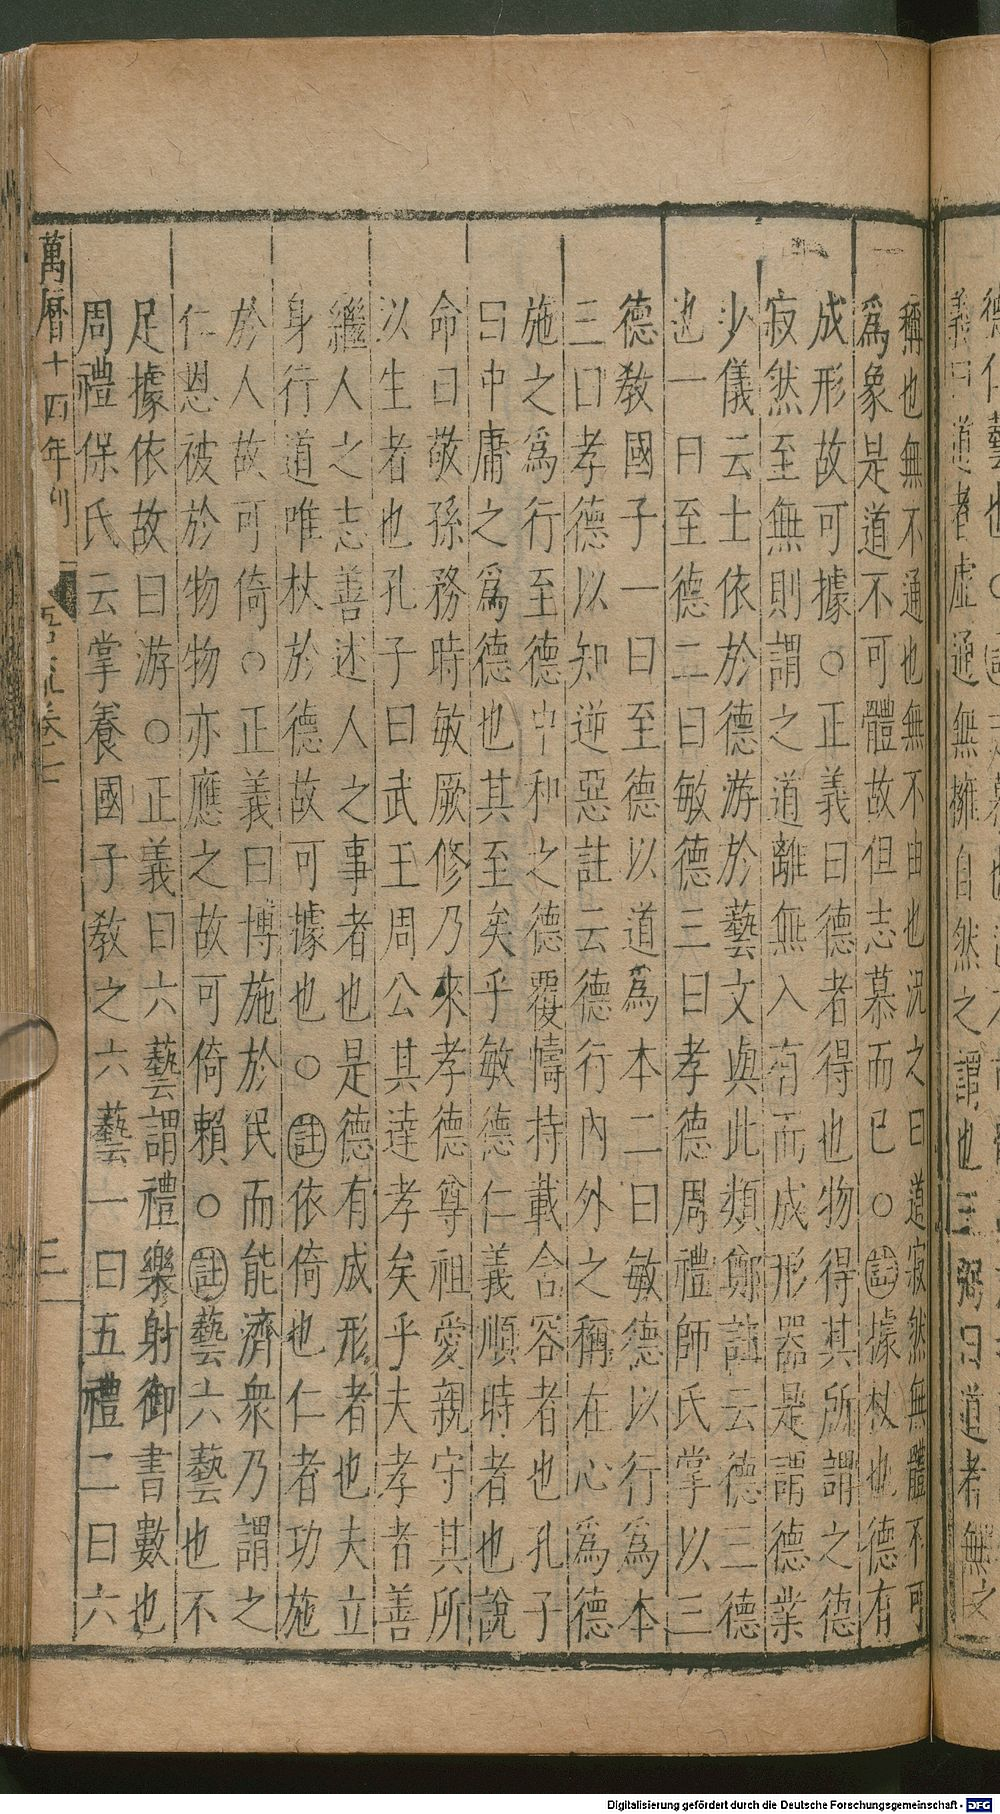 德仁藝也○
義曰道者虛通無擁自然之謂也王弼曰道者無之
稱也無不通也無不由也況之曰道寂然無體不可
爲象是道不可體故但志慕而已○註據杖也德有
成形故可據○正義曰德者得也物得其所謂之德
寂然至無則謂之道離無入有而成形器是謂德業
少儀云士依於德游於藝文與此類鄭註云德三德
也一曰至德二曰敏德三曰孝德周禮師氏掌以三
德敎國子一曰至德以道爲本二曰敏德以行爲本
三曰孝德以知逆惡註云德行內外之稱在心爲德
施之爲行至德中和之德覆幬持載含容者也孔子
曰中庸之爲德也其至矣乎敏德仁義順時者也說
命曰敬孫務時敏厥修乃來孝德尊祖愛親守其所
以生者也孔子曰武王周公其達孝矣乎夫孝者善
繼人之志善述人之事者也是德有成形者也夫立
身行道唯杖於德故可據也○註依倚也仁者功施
於人故可倚○正義曰博施於民而能濟衆乃謂之
仁恩被於物物亦應之故可倚賴○註藝六藝也不
足據依故曰游○正義曰六藝謂禮樂射御書數也
周禮保氏云掌養國子敎之六藝一曰五禮二曰六
萬曆十四年刊
卷七
三
Digitalisierung gefördert durch die Deutsche Forschungsgemeinschaft - DFG